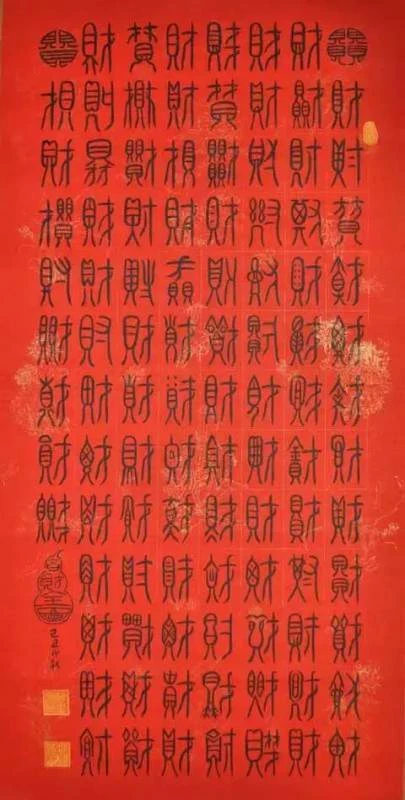 財財財財財財財財財財財財財
財財財財財財財財財財財財財
財財財財財財財財財財財財財
財財財財財財財財財財財財財
財財財財財財財財財財財財財
財財財財財財財財財財財財財
財財財財財財財財財財財財財
財財財財財財財財財
己丑仲秋